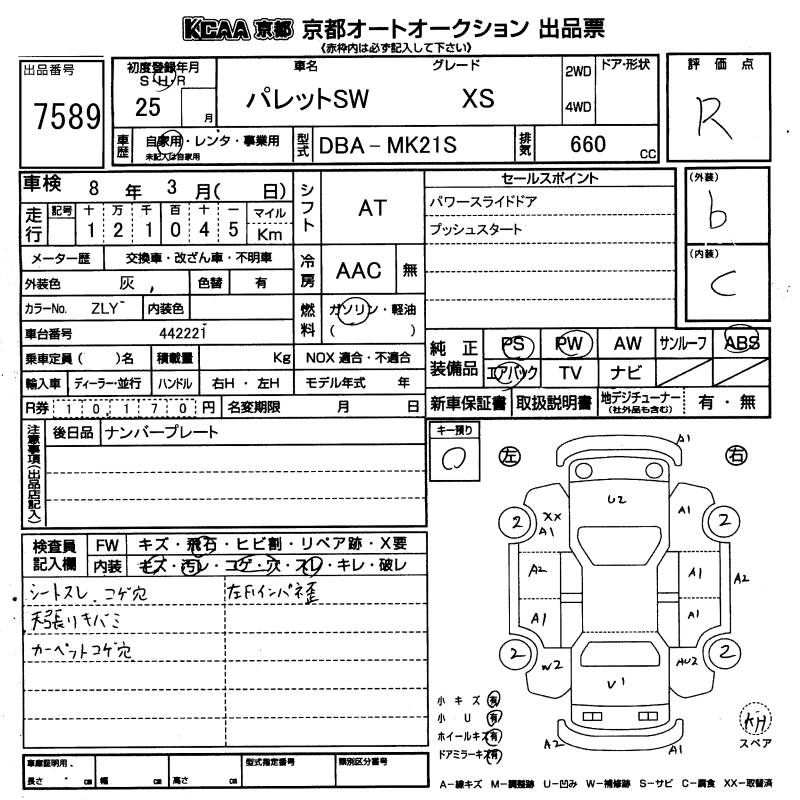 KCAA 京都 京都オートオークション 出品票
《赤枠内は必ず記入して下さい》
出品番号
7589
初度登録年月
S・H・R
25 月
車名 グレード
パレットSW XS
2WD
4WD
ドア・形状
評価点
R
車歴
自家用・レンタ・事業用
未記入は自家用
型式
DBA-MK21S
排気
660 CC
車検 8年 3月( 日)
走行
記号 十 万 千 百 十 一 マイル
1 2 1 0 4 5 Km
メーター歴 交換車・改ざん車・不明車
外装色 灰, 色替 有
カラーNo. ZLY 内装色
車台番号 442221
乗車定員( )名 積載量 Kg NOX 適合・不適合
輸入車 ディーラー・並行 ハンドル 右H・左H モデル年式 年
R券 10,170円 名変期限 月 日
シフト
AT
冷房
AAC 無
燃料
ガソリン・軽油
( )
セールスポイント
パワースライドドア
プッシュスタート
(外装)
b
(内装)
C
純正装備品
PS PW AW サンルーフ ABS
エアバック TV ナビ
新車保証書 取扱説明書 地デジチューナー
(社外品も含む)
有・無
注意事項(出品店記入)
後日品 ナンバープレート
キー預り
O
左 右
検査員記入欄
FW キズ・飛石・ヒビ割・リペア跡・X要
内装 キズ・汚レ・コゲ・穴・スレ・キレ・破レ
シートスレ、コゲ穴
左Fインパネ歪
天張りキバミ
カーペットコゲ穴
A1
U2
2 XX A1 A1 2
A2 A1 A2
A1 A1
2 W2 AU2 2
V1
A2 A1
小キズ 有
小U 有
ホイールキズ 有
ドアミラーキズ 有
KH
スペア
車庫証明用、
長さ cm 幅 cm 高さ cm
型式指定番号
類別区分番号
A-線キズ M-調整跡 U-凹み W-補修跡 S-サビ C-腐食 XX-取替済